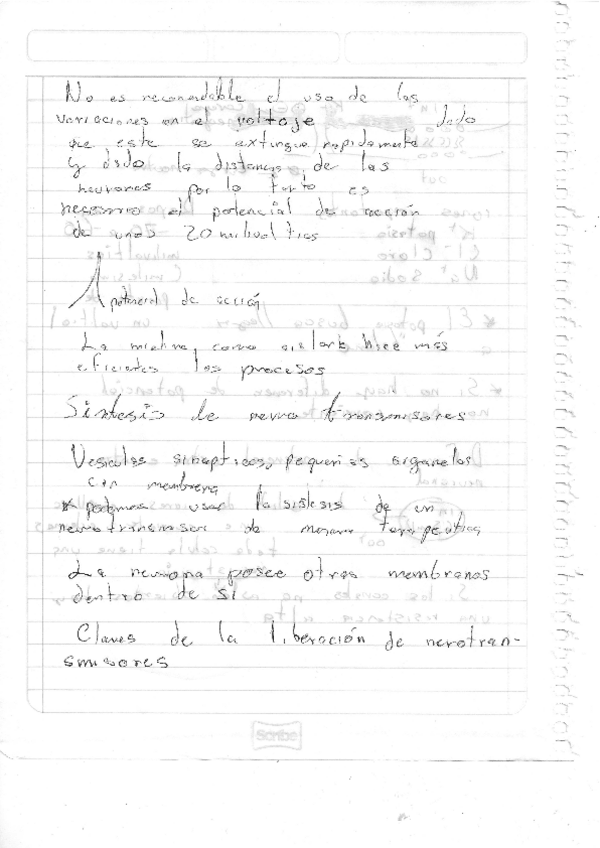 No es recomendable el uso de las
variaciones en el voltaje dado
que este se extingue rapidamente
y dado la distancia de las
neuronas por lo tanto es
necesario el potencial de acción
de unos 20 milivoltios
potencial de acción
La mielina, como aislante hace más
eficientes los procesos
Sintesis de neurotransmisores
Vesiculas sinapticas, pequeñas organelos
con membrana
* podemos usar la sistesis de un
neurotransmisor de manera terapeutica
La neurona posee otras membranas
dentro de si
Claves de la liberación de nerotran-
smisores
Scribe